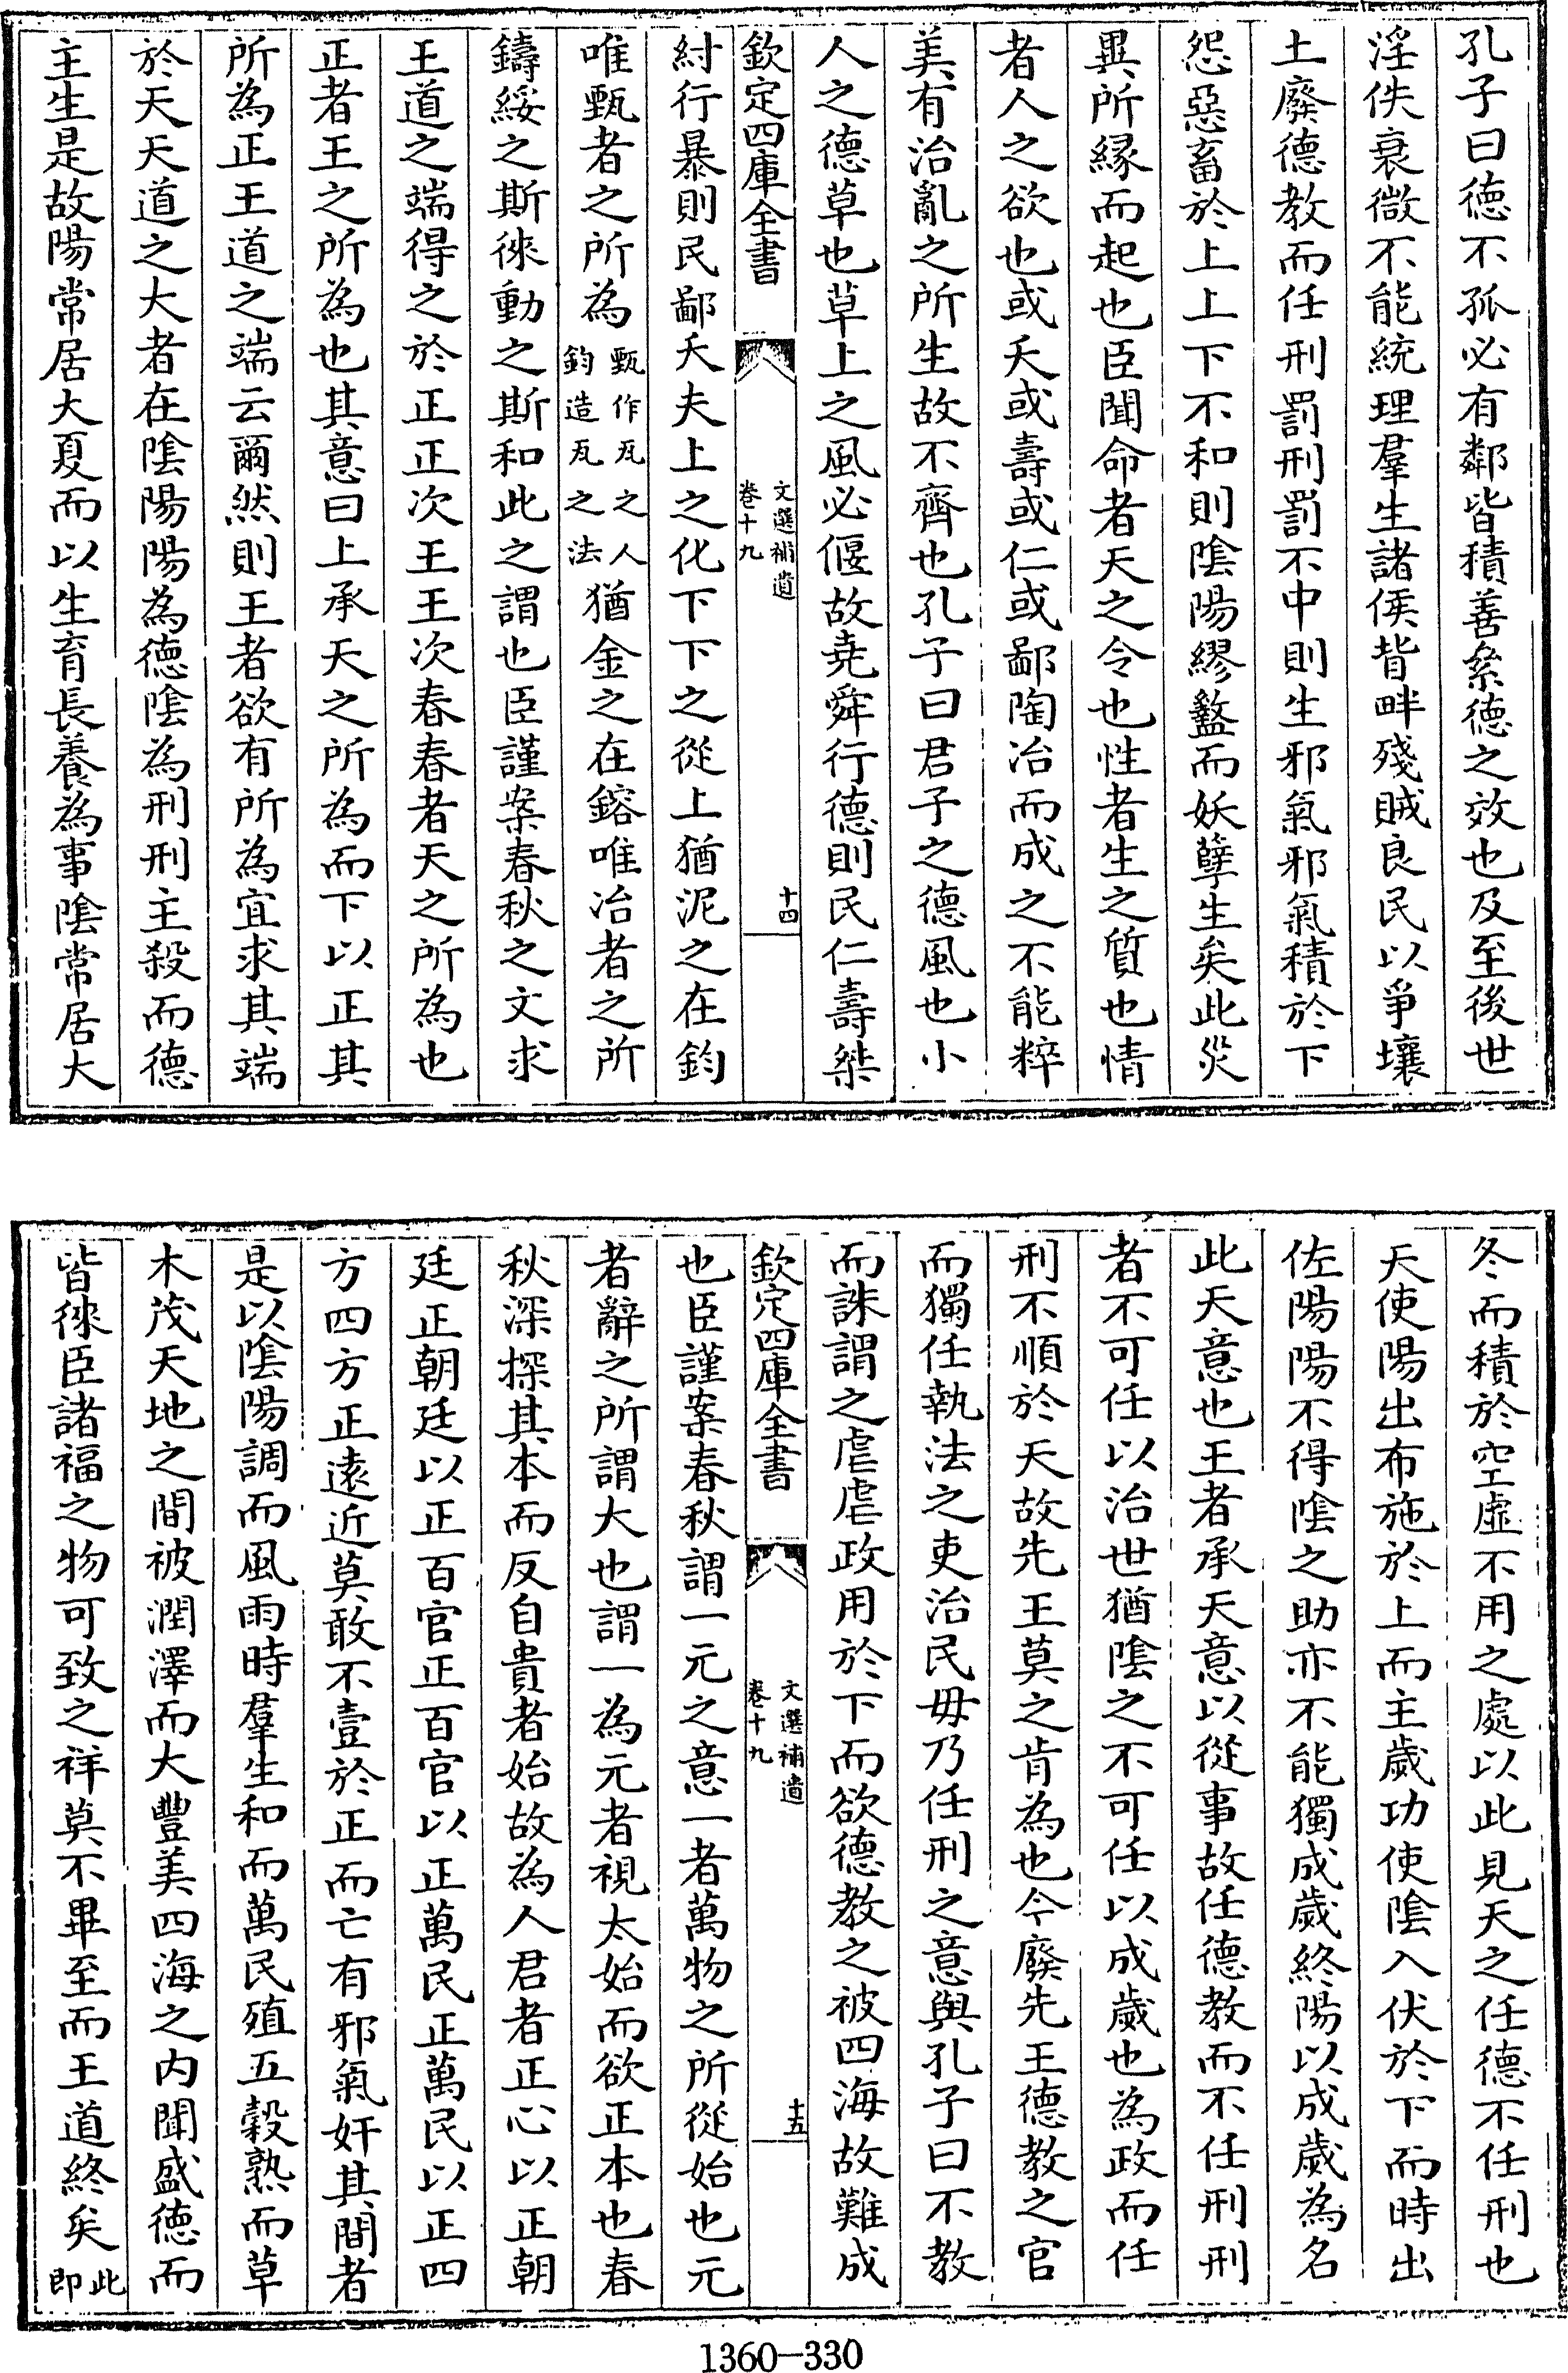 孔子曰德不孤必有鄰皆積善絫德之效也及至後世
淫佚衰微不能統理羣生諸侯背畔殘賊良民以爭壤
土廢德教而任刑罰刑罰不中則生邪氣邪氣積於下
怨惡畜於上上下不和則隂陽繆盭而妖孽生矣此災
異所縁而起也臣聞命者天之令也性者生之質也情
者人之欲也或夭或壽或仁或鄙陶冶而成之不能粹
美有治亂之所生故不齊也孔子曰君子之德風也小
人之德草也草上之風必偃故堯舜行德則民仁壽桀
欽定四庫全書
文選補遺
卷十九
十四
紂行暴則民鄙夭夫上之化下下之從上猶泥之在鈞
唯甄者之所為甄作瓦之人鈞造瓦之法猶金之在鎔唯冶者之所
鑄綏之斯徠動之斯和此之謂也臣謹案春秋之文求
王道之端得之於正正次王王次春春者天之所為也
正者王之所為也其意曰上承天之所為而下以正其
所為正王道之端云爾然則王者欲有所為宜求其端
於天天道之大者在隂陽陽為德隂為刑刑主殺而德
主生是故陽常居大夏而以生育長養為事隂常居大
冬而積於空虛不用之處以此見天之任德不任刑也
天使陽出布施於上而主歲功使隂入伏於下而時出
佐陽陽不得隂之助亦不能獨成歲終陽以成歲為名
此天意也王者承天意以從事故任德教而不任刑刑
者不可任以治世猶隂之不可任以成歲也為政而任
刑不順於天故先王莫之肯為也今廢先王德教之官
而獨任執法之吏治民毋乃任刑之意與孔子曰不教
而誅謂之虐虐政用於下而欲德教之被四海故難成
欽定四庫全書
文選補遺
卷十九
十五
也臣謹案春秋謂一元之意一者萬物之所從始也元
者辭之所謂大也謂一為元者視太始而欲正本也春
秋深探其本而反自貴者始故為人君者正心以正朝
廷正朝廷以正百官正百官以正萬民正萬民以正四
方四方正遠近莫敢不壹於正而亡有邪氣奸其間者
是以隂陽調而風雨時羣生和而萬民殖五穀熟而草
木茂天地之間被潤澤而大豐美四海之内聞盛德而
皆徠臣諸福之物可致之祥莫不畢至而王道終矣此即
1360-330